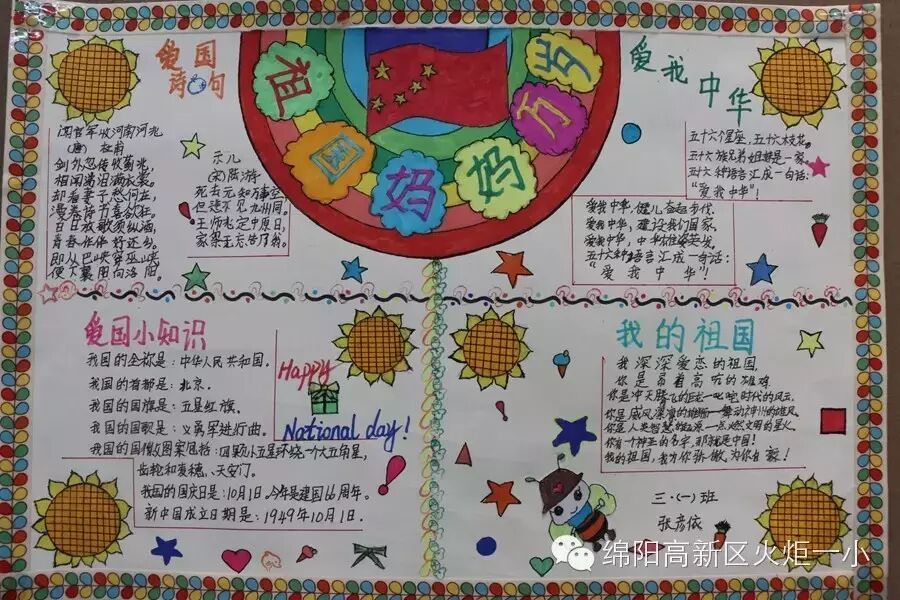 爱国
诗句
闻官军收河南河北
(唐) 杜甫
剑外忽传收蓟北,
初闻涕泪满衣裳。
却看妻子愁何在,
漫卷诗书喜欲狂。
白日放歌须纵酒,
青春作伴好还乡。
即从巴峡穿巫峡,
便下襄阳向洛阳。
示儿
(宋)陆游
死去元知万事空
但悲不见九州同。
王师北定中原日,
家祭无忘告乃翁。
祖国妈妈万岁
爱我中华
五十六个星座,五十六枝花。
五十六族兄弟姐妹是一家。
五十六种语言汇成一句话:
"爱我中华"!
爱我中华,健儿奋起步伐。
爱我中华,建设我们国家。
爱我中华,中华雄姿英发。
五十六种语言汇成一句话:
"爱我中华"!
爱国小知识
我国的全称是:中华人民共和国。
我国的首都是:北京。
我国的国旗是:五星红旗。
我国的国歌是:义勇军进行曲。
我国的国徽图案包括:四颗小五星环绕一个大五角星,
齿轮和麦穗、天安门。
我国的国庆日是:10月1日,今年是建国66周年。
新中国成立日期是:1949年10月1日.
Happy
National day!
我的祖国
我深深爱恋的祖国,
你是昂着高吭的雄鸡
你是冲天腾飞的巨龙—叱咤时代的风云,
你是威风凛凛的雄狮—舞动神州的雄风,
你是人类智慧的起源—点燃文明的星火。
你有一个神圣的名字,那就是中国!
我的祖国,我为你骄傲,为你自豪!
三·(一)班
张彦依
绵阳高新区火炬一小